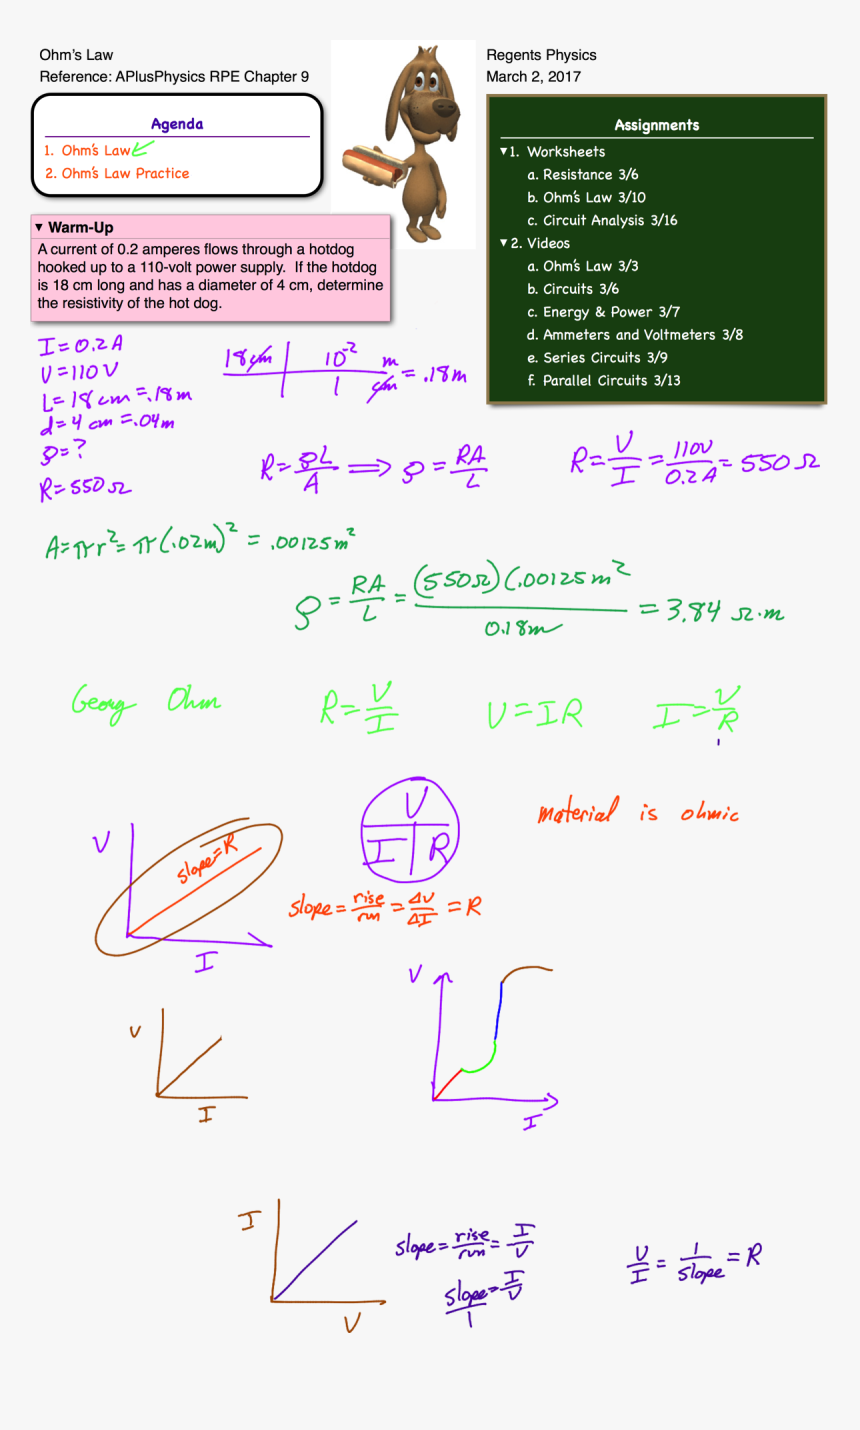 Ohm's Law
Reference: APlusPhysics RPE Chapter 9
Regents Physics
March 2, 2017
Agenda
1. Ohm's Law
2. Ohm's Law Practice
Assignments
▼1. Worksheets
a. Resistance 3/6
b. Ohm's Law 3/10
c. Circuit Analysis 3/16
▼2. Videos
a. Ohm's Law 3/3
b. Circuits 3/6
c. Energy & Power 3/7
d. Ammeters and Voltmeters 3/8
e. Series Circuits 3/9
f. Parallel Circuits 3/13
▼ Warm-Up
A current of 0.2 amperes flows through a hotdog
hooked up to a 110-volt power supply. If the hotdog
is 18 cm long and has a diameter of 4 cm, determine
the resistivity of the hot dog.
I=0.2A
V=110V
L=18cm=.18m
d=4cm=.04m
ρ=?
R=550Ω
18cm | 10⁻² m
| 1 cm = .18m
R=ρL/A ⟹ ρ=RA/L
R=V/I=110V/0.2A=550Ω
A=πr²=π(.02m)²=.00125m²
ρ=RA/L=(550Ω)(.00125m²)/0.18m=3.84 Ω·m
Georg Ohm
R=V/I
V=IR
I=V/R
V
I R
material is ohmic
V
slope=R
I
slope=rise/run=ΔV/ΔI=R
V
I
V
I
I
V
slope=rise/run=I/V
slope/1=I/V
V/I=1/slope=R